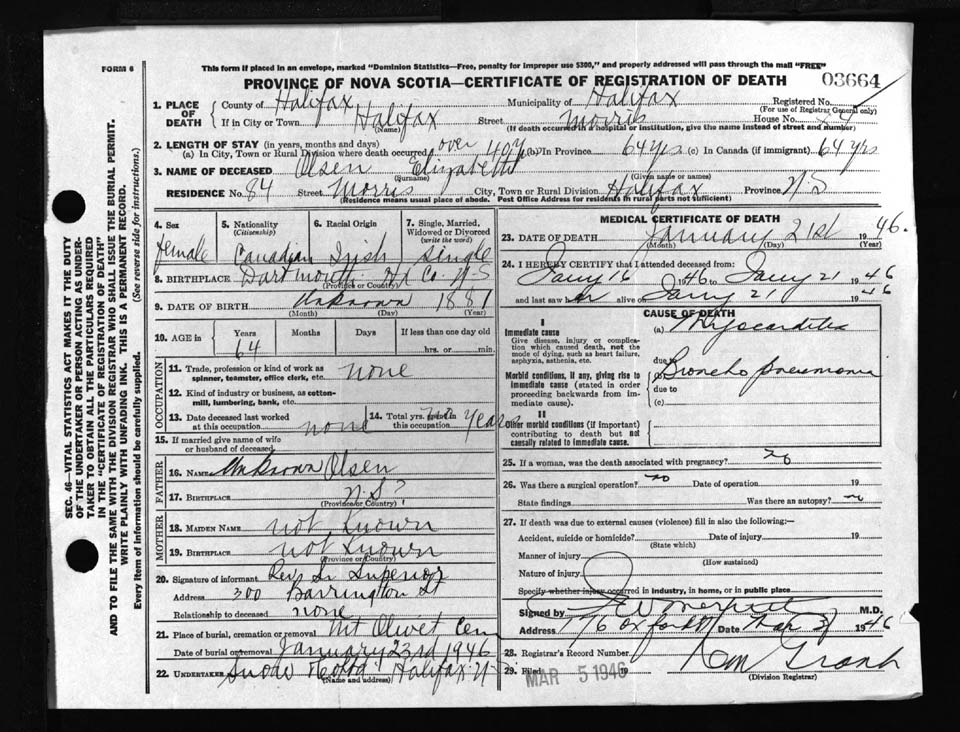 FORM 6
This form if placed in an envelope, marked "Dominion Statistics—Free, penalty for improper use $300," and properly addressed will pass through the mail "FREE"
PROVINCE OF NOVA SCOTIA—CERTIFICATE OF REGISTRATION OF DEATH 03664
1. PLACE OF DEATH County of Halifax Municipality of Halifax Registered No.
(For use of Registrar General only)
If in City or Town Halifax Street Morris House No. 84
(Name) (If death occurred in a hospital or institution, give the name instead of street and number)
2. LENGTH OF STAY (in years, months and days)
(a) In City, Town or Rural Division where death occurred over 40 y (b) In Province 64 yrs (c) In Canada (if immigrant) 64 yrs
3. NAME OF DECEASED Olsen Elizabeth
(Surname) (Given name or names)
RESIDENCE No. 84 Street Morris City, Town or Rural Division Halifax Province N.S
(Residence means usual place of abode. Post Office Address for residents in rural parts not sufficient)
4. Sex 5. Nationality (Citizenship) 6. Racial Origin 7. Single, Married, Widowed or Divorced (write the word)
female Canadian Irish Single
8. BIRTHPLACE Dartmouth Hx Co. N-S
(Province or Country)
9. DATE OF BIRTH Unknown 1881
(Month) (Day) (Year)
10. AGE in Years Months Days If less than one day old
64 hrs. or min.
OCCUPATION
11. Trade, profession or kind of work as spinner, teamster, office clerk, etc. none
12. Kind of industry or business, as cotton-mill, lumbering, bank, etc.
13. Date deceased last worked at this occupation none 14. Total yrs. spent in this occupation years
15. If married give name of wife or husband of deceased
FATHER
16. NAME Unknown Olsen
17. BIRTHPLACE N.S?
(Province or Country)
MOTHER
18. MAIDEN NAME not Known
19. BIRTHPLACE not Known
(Province or Country)
20. Signature of informant Rev. Sr Superior
Address 300 Barrington St
Relationship to deceased none
21. Place of burial, cremation or removal Mt Olivet Cem
Date of burial or removal January 23rd 1946
22. UNDERTAKER Snow & Co Ltd Halifax N-S
(Name and address)
MEDICAL CERTIFICATE OF DEATH
23. DATE OF DEATH January 21st 1946.
(Month) (Day) (Year)
24. I HEREBY CERTIFY that I attended deceased from:
Jany 16 1946 to Jany 21 1946
and last saw her alive on Jany 21 1946
CAUSE OF DEATH
I
Immediate cause
Give disease, injury or complication which caused death, not the mode of dying, such as heart failure, asphyxia, asthenia, etc.
(a) Myocarditis
due to
Morbid conditions, if any, giving rise to immediate cause (stated in order proceeding backwards from immediate cause).
(b) Broncho pneumonia
due to
(c)
II
Other morbid conditions (if important) contributing to death but not causally related to immediate cause.
25. If a woman, was the death associated with pregnancy? no
26. Was there a surgical operation? no Date of operation 19
State findings Was there an autopsy? no
27. If death was due to external causes (violence) fill in also the following:—
Accident, suicide or homicide? Date of injury 19
(State which)
Manner of injury
(How sustained)
Nature of injury
Specify whether injury occurred in industry, in home, or in public place
Signed by M.D.
Address 176 Oxford St Date Mar 3 1946
28. Registrar's Record Number
29. Filed MAR 5 1946
(Division Registrar)
SEC. 46—VITAL STATISTICS ACT MAKES IT THE DUTY
OF THE UNDERTAKER OR PERSON ACTING AS UNDER-
TAKER TO OBTAIN ALL THE PARTICULARS REQUIRED
IN THE "CERTIFICATE OF REGISTRATION OF DEATH"
AND TO FILE THE SAME WITH THE DIVISION REGISTRAR WHO SHALL ISSUE THE BURIAL PERMIT.
WRITE PLAINLY WITH UNFADING INK. THIS IS A PERMANENT RECORD.
Every item of information should be carefully supplied. (See reverse side for instructions.)